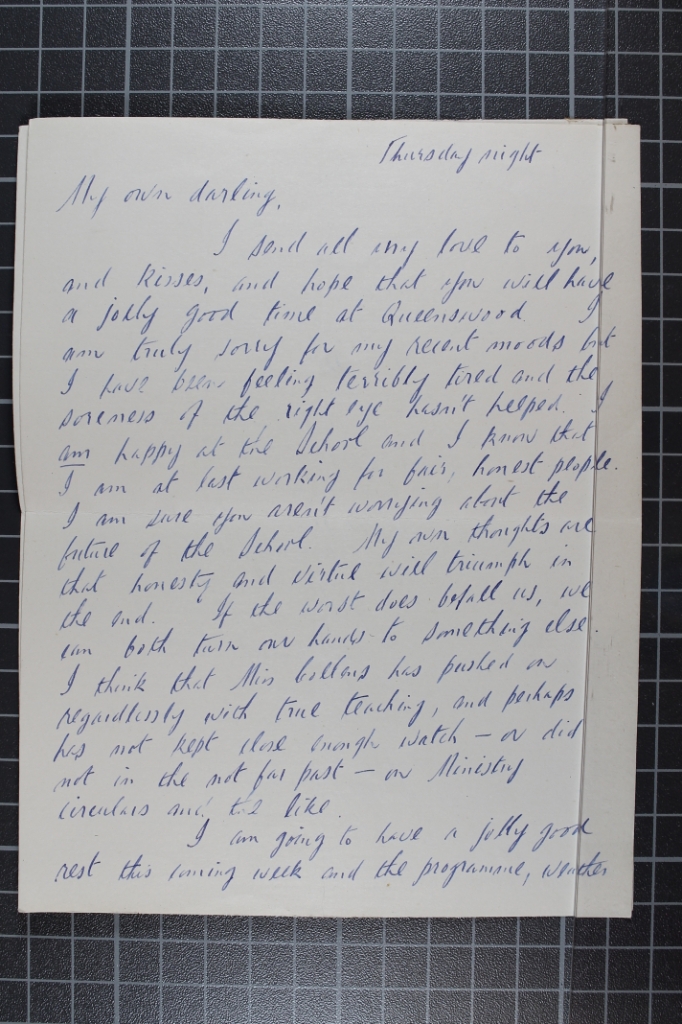 Thursday night
My own darling,
I send all my love to you,
and kisses, and hope that you will have
a jolly good time at Queenswood. I
am truly sorry for my recent moods but
I have been feeling terribly tired and the
soreness of the right eye hasn't helped. I
am happy at the School and I know that
I am at last working for fair, honest people.
I am sure you aren't worrying about the
future of the School. My own thoughts are
that honesty and virtue will triumph in
the end. If the worst does befall us, we
can both turn our hands to something else.
I think that Miss Collens has pushed on
regardlessly with true teaching, and perhaps
has not kept close enough watch – or did
not in the not far past – on Ministry
circulars and the like.
I am going to have a jolly good
rest this coming week and the programme, weather